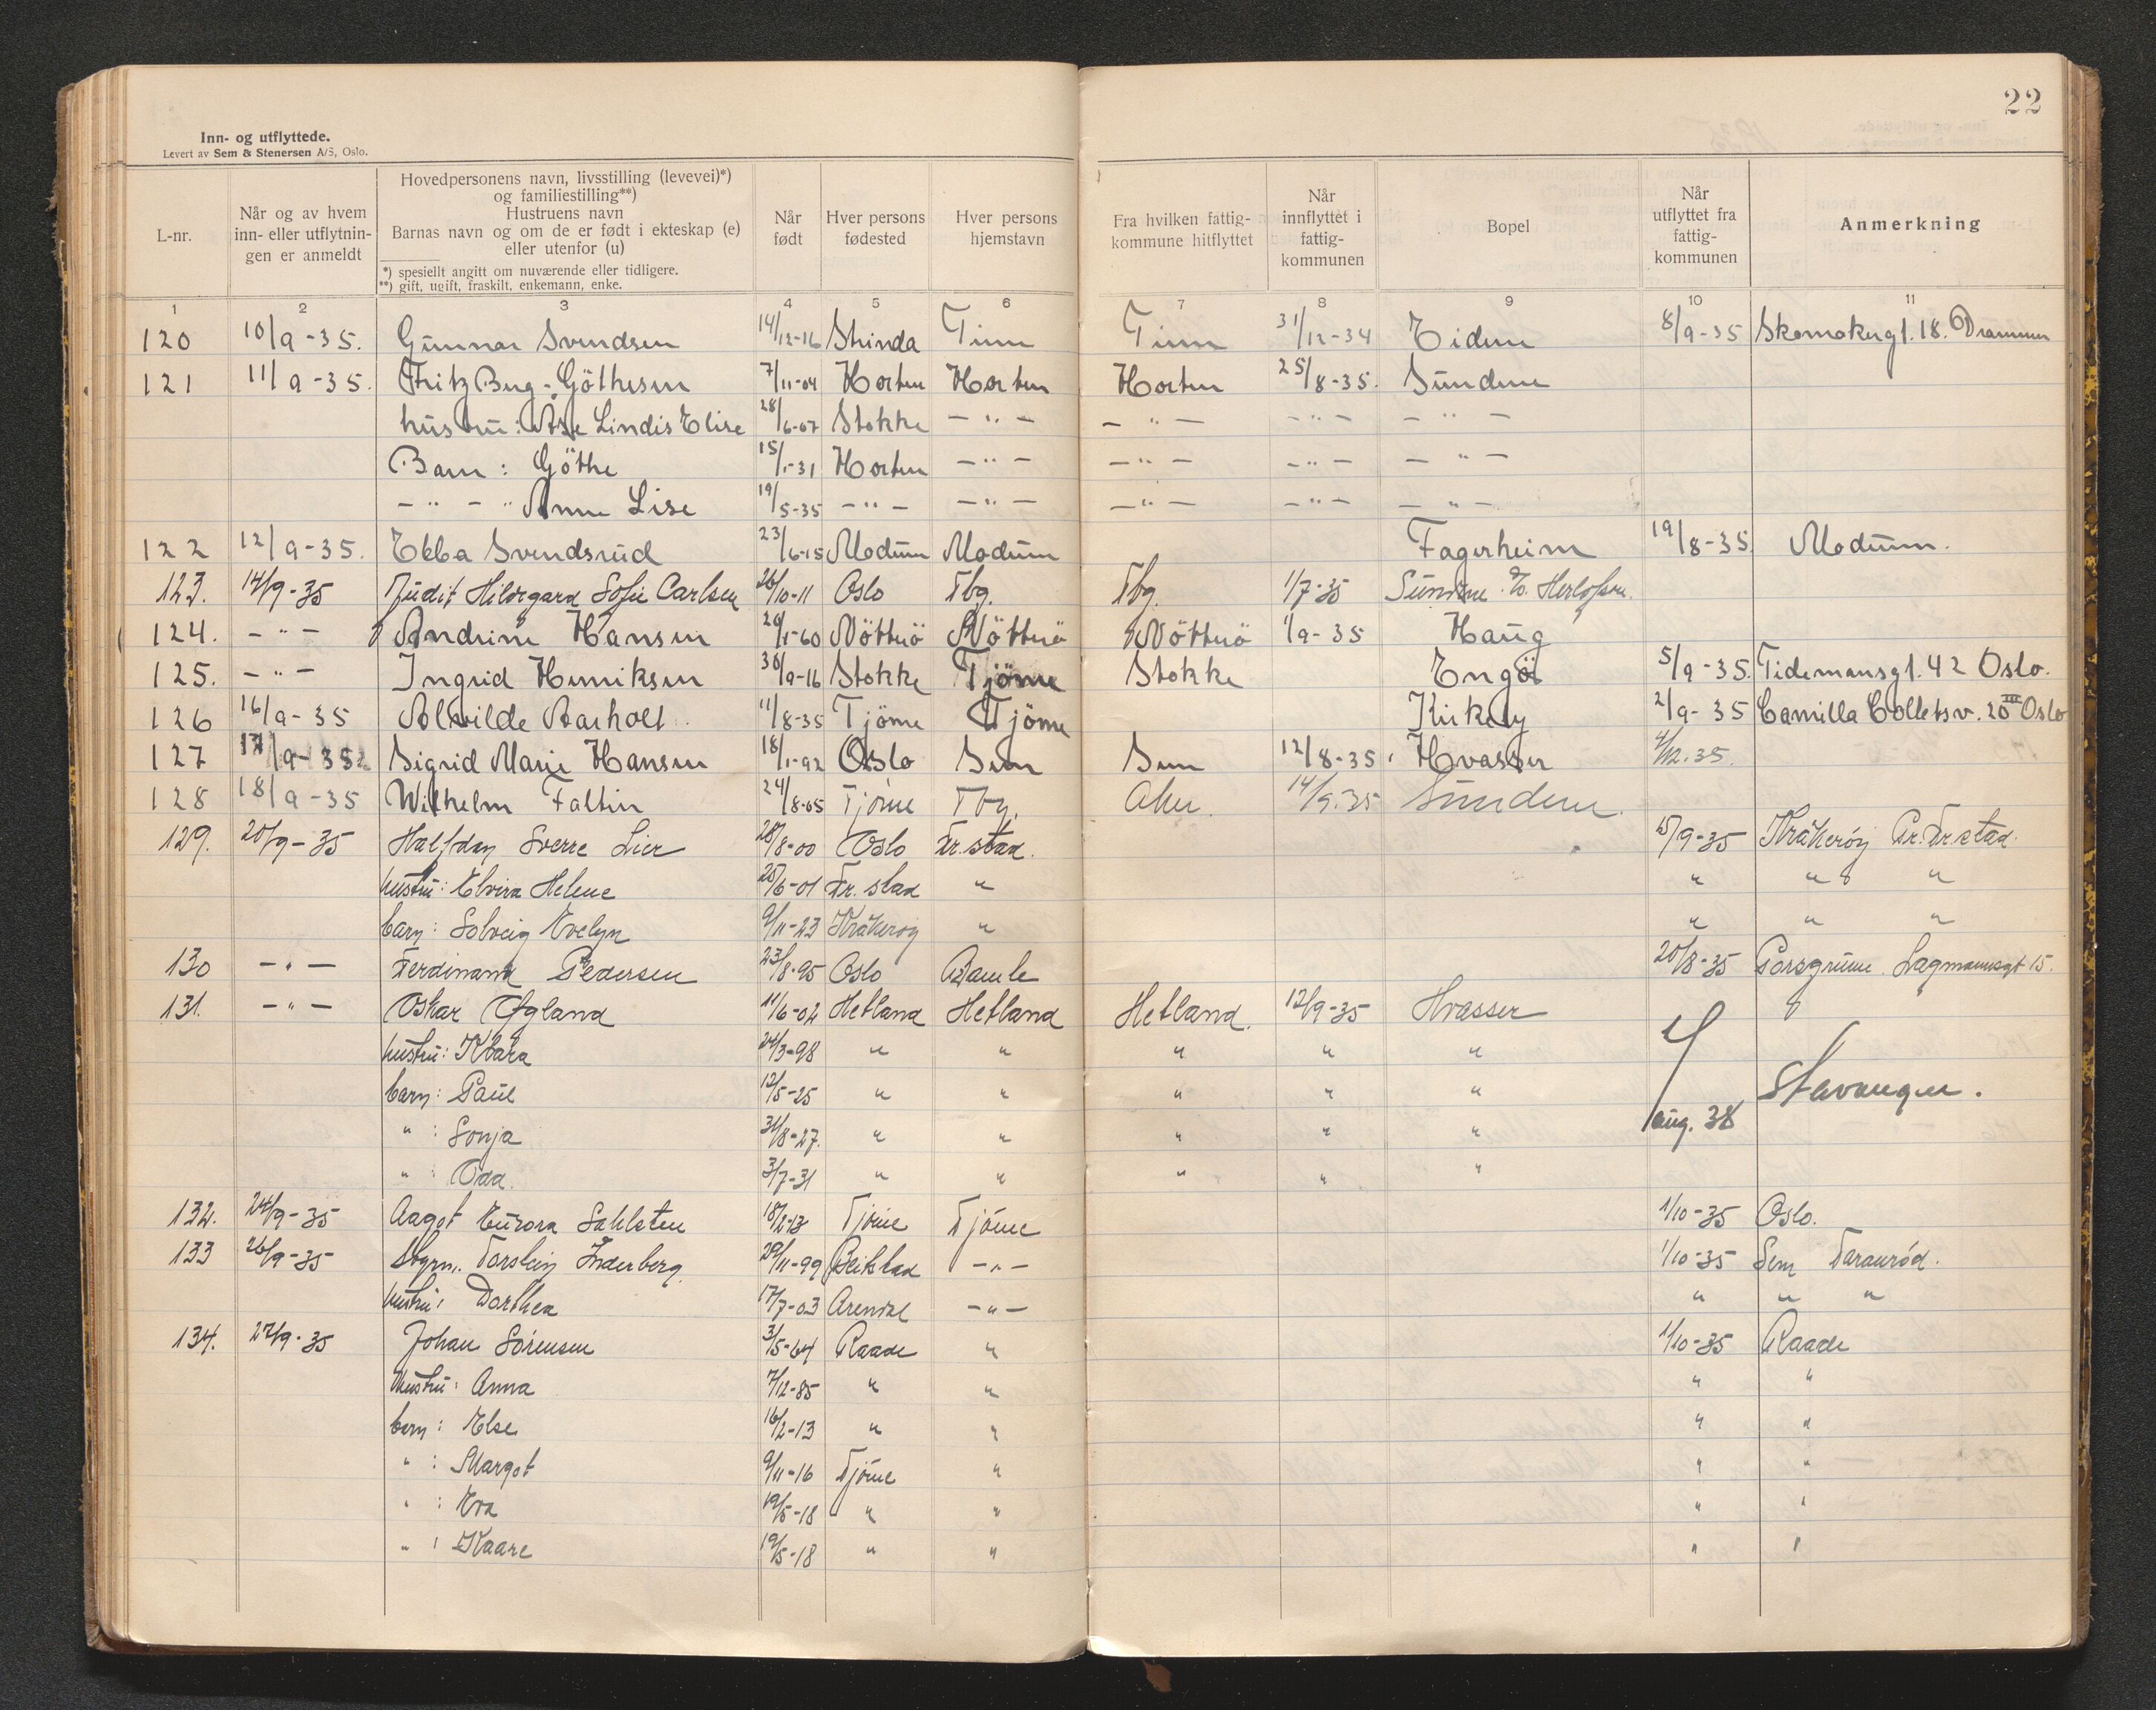 22
Inn- og utflyttede.
Levert av Sem & Stenersen A/S, Oslo.
L-nr.
Når og av hvem inn- eller utflytnin- gen er anmeldt
Hovedpersonens navn, livsstilling (levevei)*)
og familiestilling**)
Hustruens navn
Barnas navn og om de er født i ekteskap (e)
eller utenfor (u)
*) spesiellt angitt om nuværende eller tidligere.
**) gift, ugift, fraskilt, enkemann, enke.
Når født
Hver persons fødested
Hver persons hjemstavn
Fra hvilken fattig- kommune hitflyttet
Når innflyttet i fattig- kommunen
Bopel
Når utflyttet fra fattig- kommunen
Anmerkning
1 2 3 4 5 6 7 8 9 10 11
120 10/9-35. Gunnar Svendsen 14/12-16 Strinda Tinn Tinn 31/12-34 Eidene 8/9-35 Skomakergt. 18. Drammen
121 11/9-35. Fritz Bug-Göthesen 7/11-04 Horten Horten Horten 25/8-35. Sundene
hustru: Åse Lindis Elise 28/6-07 Stokke -"- -"- -"- -"-
Barn: Göthe 15/1-31 Horten -"- -"- -"- -"-
-"- " Anne Lise 19/5-35 -"- -"- -"- -"- -"-
122 12/9-35. Ebba Svendsrud 23/6-15 Modum Modum Fagerheim 19/8-35 Modum.
123. 14/9-35 Judit Hildegard Sofie Carlsen 26/10-11 Oslo Tbg. Tbg. 1/7-35 Sundene. Herlofsen.
124. -"- Andrine Hansen 29/1-60 Nötterö Nötterö Nötterö 1/9-35 Haug
125. -"- Ingrid Henriksen 30/9-16 Stokke Tjöme Stokke Engö 5/9-35. Tidemansgt. 42 Oslo.
126 16/9-35 Alvilde Aarholt 11/8-35 Tjöme Tjöme Kirkeby 2/9-35 Camilla Colletsv. 20 III Oslo
127 17/9-35 Sigrid Marie Hansen 18/1-92 Oslo Sem Sem 12/8-35. Hvasser 4/12.35.
128 18/9-35 Wilhelm Faltin 24/8-05 Tjöme Tbg. Aker. 14/9.35 Sundene.
129. 20/9-35 Halfdan Sverre Lier 28/8-00 Oslo Fr.stad. 15/9-35 Kråkeröy Pr. Fr.stad.
hustru: Elvira Helene 25/6-01 Fr.stad " " " "
barn: Solveig Evelyn 9/11-23 Kråkeröy " " " "
130 -"- Ferdinand Pedersen 23/8-95 Oslo Bamle 20/8-35 Porsgrunn. Lagmannsgt 15.
131. -"- Oskar Øgland 11/6-02 Hetland Hetland Hetland. 12/9-35 Hvasser
hustru: Klara 24/3-98 " " " " "
barn: Paul 12/5-25 " " " " " Stavanger.
" : Sonja 31/8-27. " " " " " aug. 38
" : Odd. 3/7-31 " " " " "
132. 24/9-35 Aagot Eurora Sahlsten 18/2-13 Tjöme Tjöme 1/10-35 Oslo.
133 26/9-35 Styrm. Torstein Inderberg. 29/11-99 Beitstad -"- 1/10-35 Sem Taranröd.
hustru: Dorthea 17/7-03 Arendal -"- " " "
134. 27/9-35 Johan Sörensen 3/5-64 Raade " 1/10-35 Raade
hustru: Anna 7/12-85 " " " "
barn: Else 16/2-13 " " " "
" : Margot 9/11-16 Tjöme " " "
" : Eva 19/5-18 " " " "
" : Kaare 19/5-18 " " " "